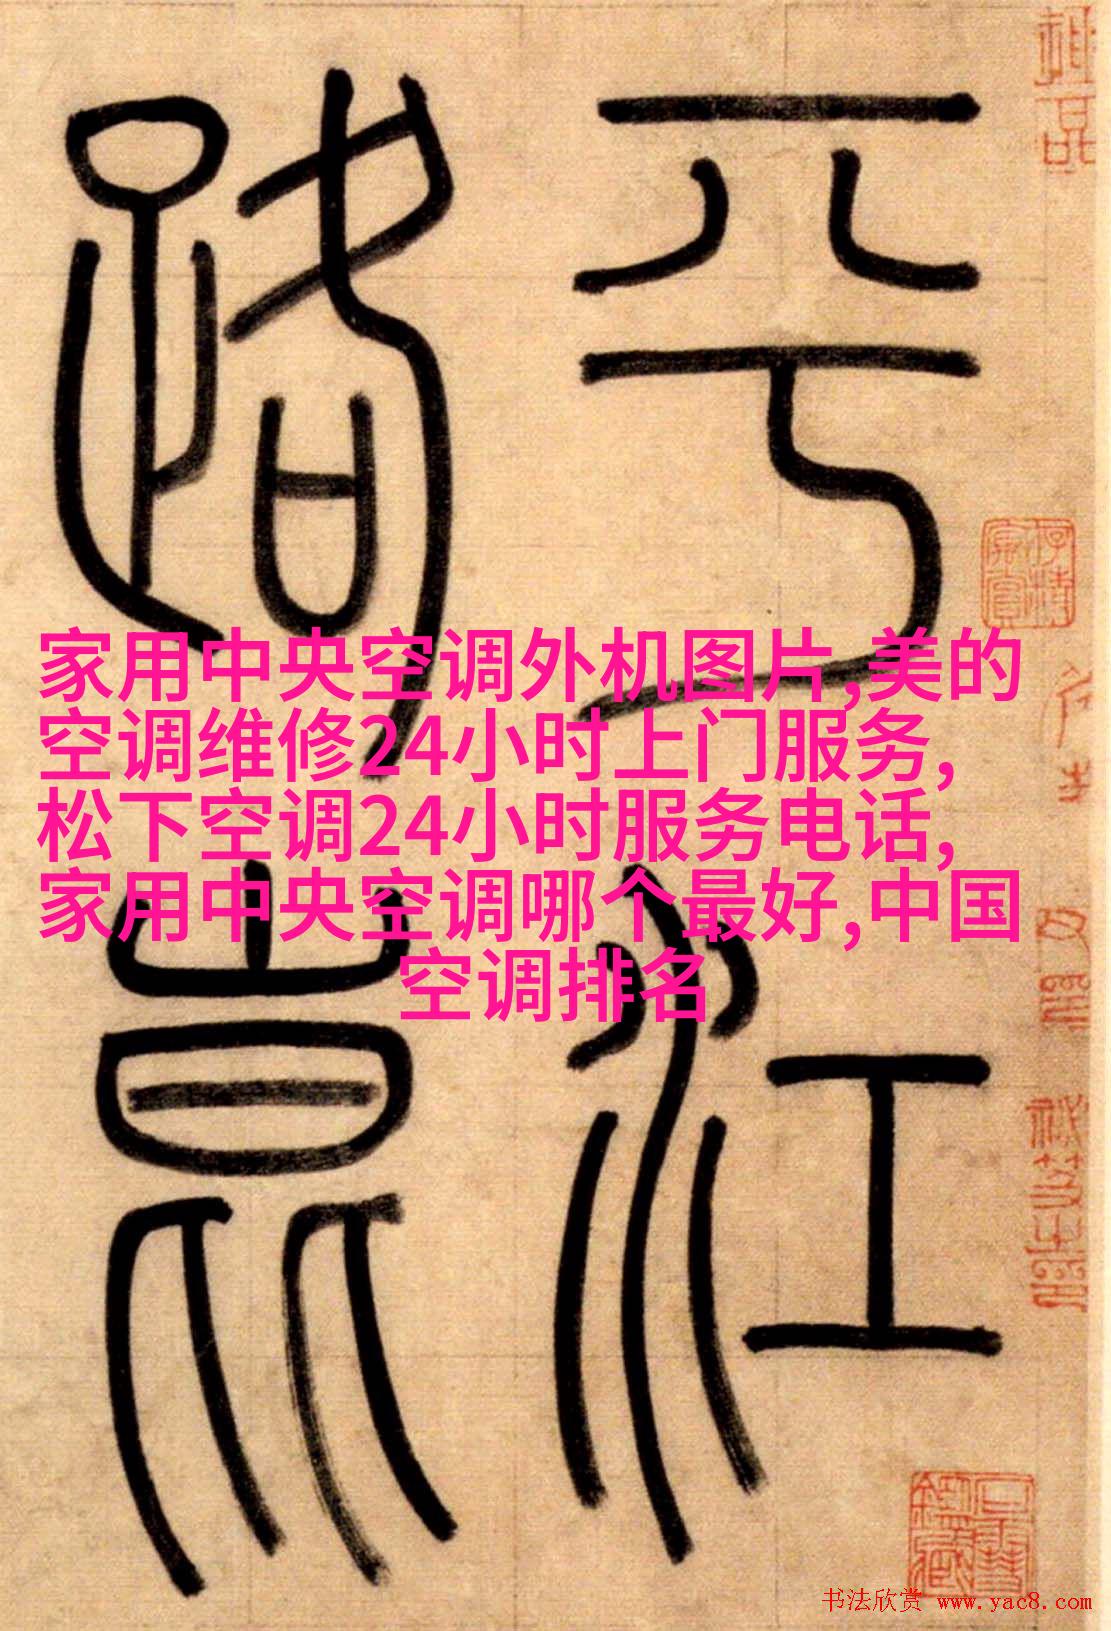 平江
路崑
家用中央空调外机图片,美的
空调维修24小时上门服务,
松下空调24小时服务电话,
家用中央空调哪个最好,中国
空调排名
书法欣赏 www.yac8.com